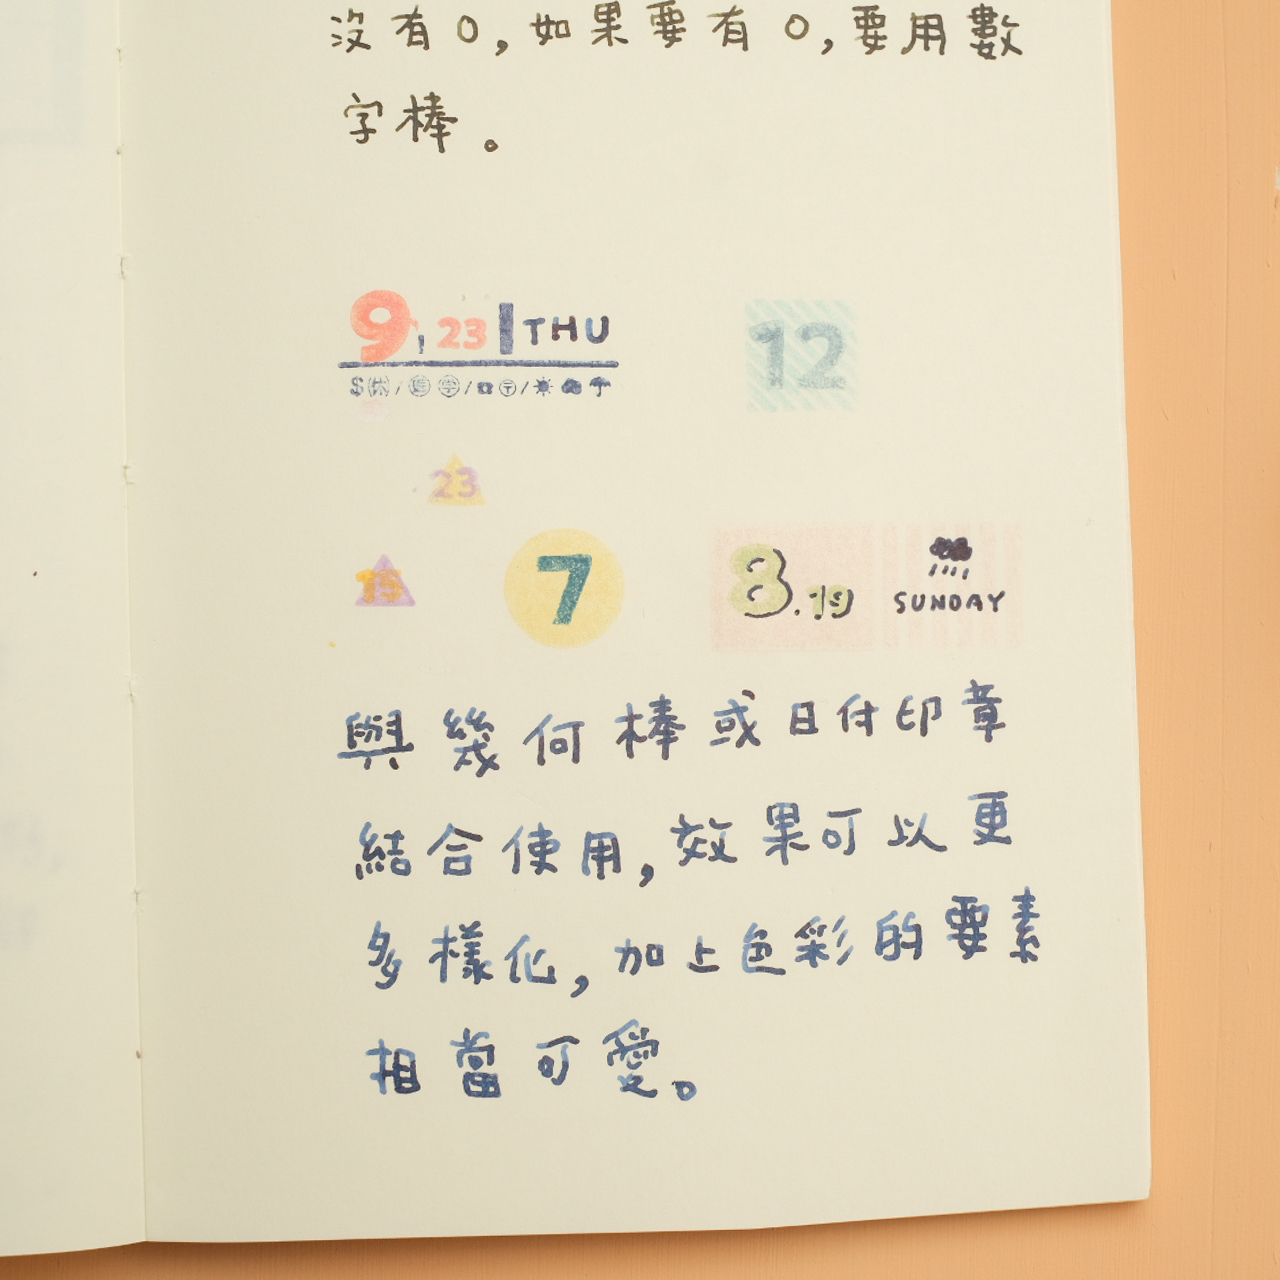 沒有0,如果要有0,要用數
字棒。
9,23 THU
12
23
15
7
8.19
SUNDAY
與幾何棒或日付印章
結合使用,效果可以更
多樣化,加上色彩的要素
相當可愛。